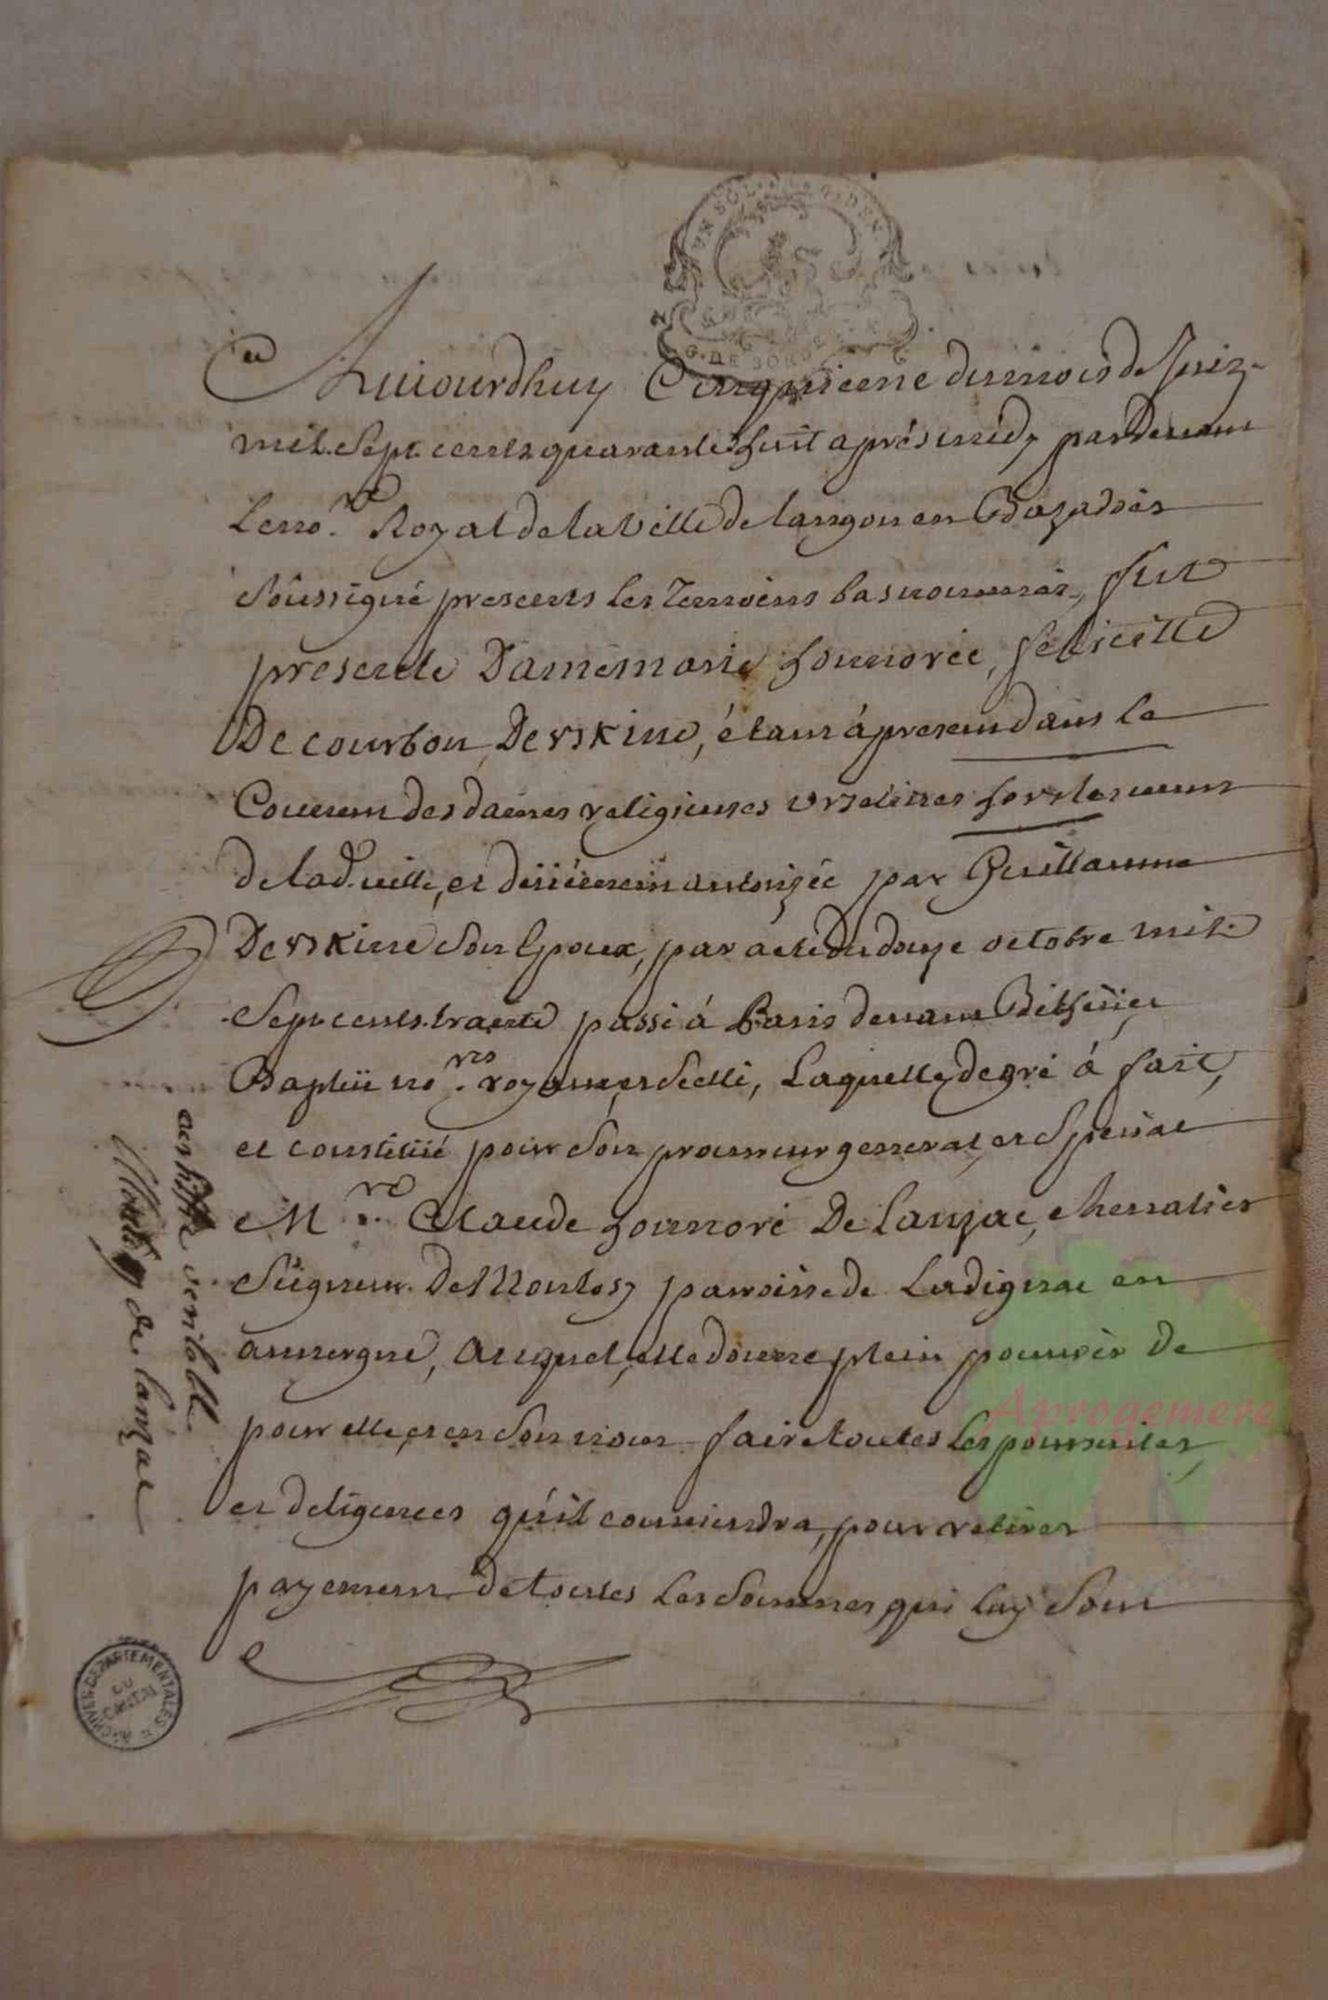 UN SOL
G. DE BORDE
Aujourdhuy Cinquieme du mois de Juin
mil sept cents quarante huit après midy pardevant
le no.re Royal de la Ville de Langon en Bazadois
soussigné presents les Temoins bas nommés, fut
presente Dame marie honnorée, felicitté
De courbon, Derskine, étant á present dans le
Couvent des dames religieuses ursulines hors les murs
de lad. ville, et duement autorizée par Guillaume
Derskine son Epoux, par acte du douze octobre mil
sept cents trante passé á Paris devant
no.res royaux, scellé, Laquelle de gré á fait,
et constitüé pour son procureur general, et special
M.re Claude honnoré De Lanzac, chevalier
seigneur De Montlosy parroisse de Ladignac en
auvergne, auquel, elle donne plein pouvoir de
pour elle, et en son nom faire toutes les poursuittes,
et deligences qu'il conviendra, pour retirer
payement de toutes les sommes qui luy sont
de lanzac
ARCHIVES DEPARTEMENTALES
DU
CANTAL
Aprogemere